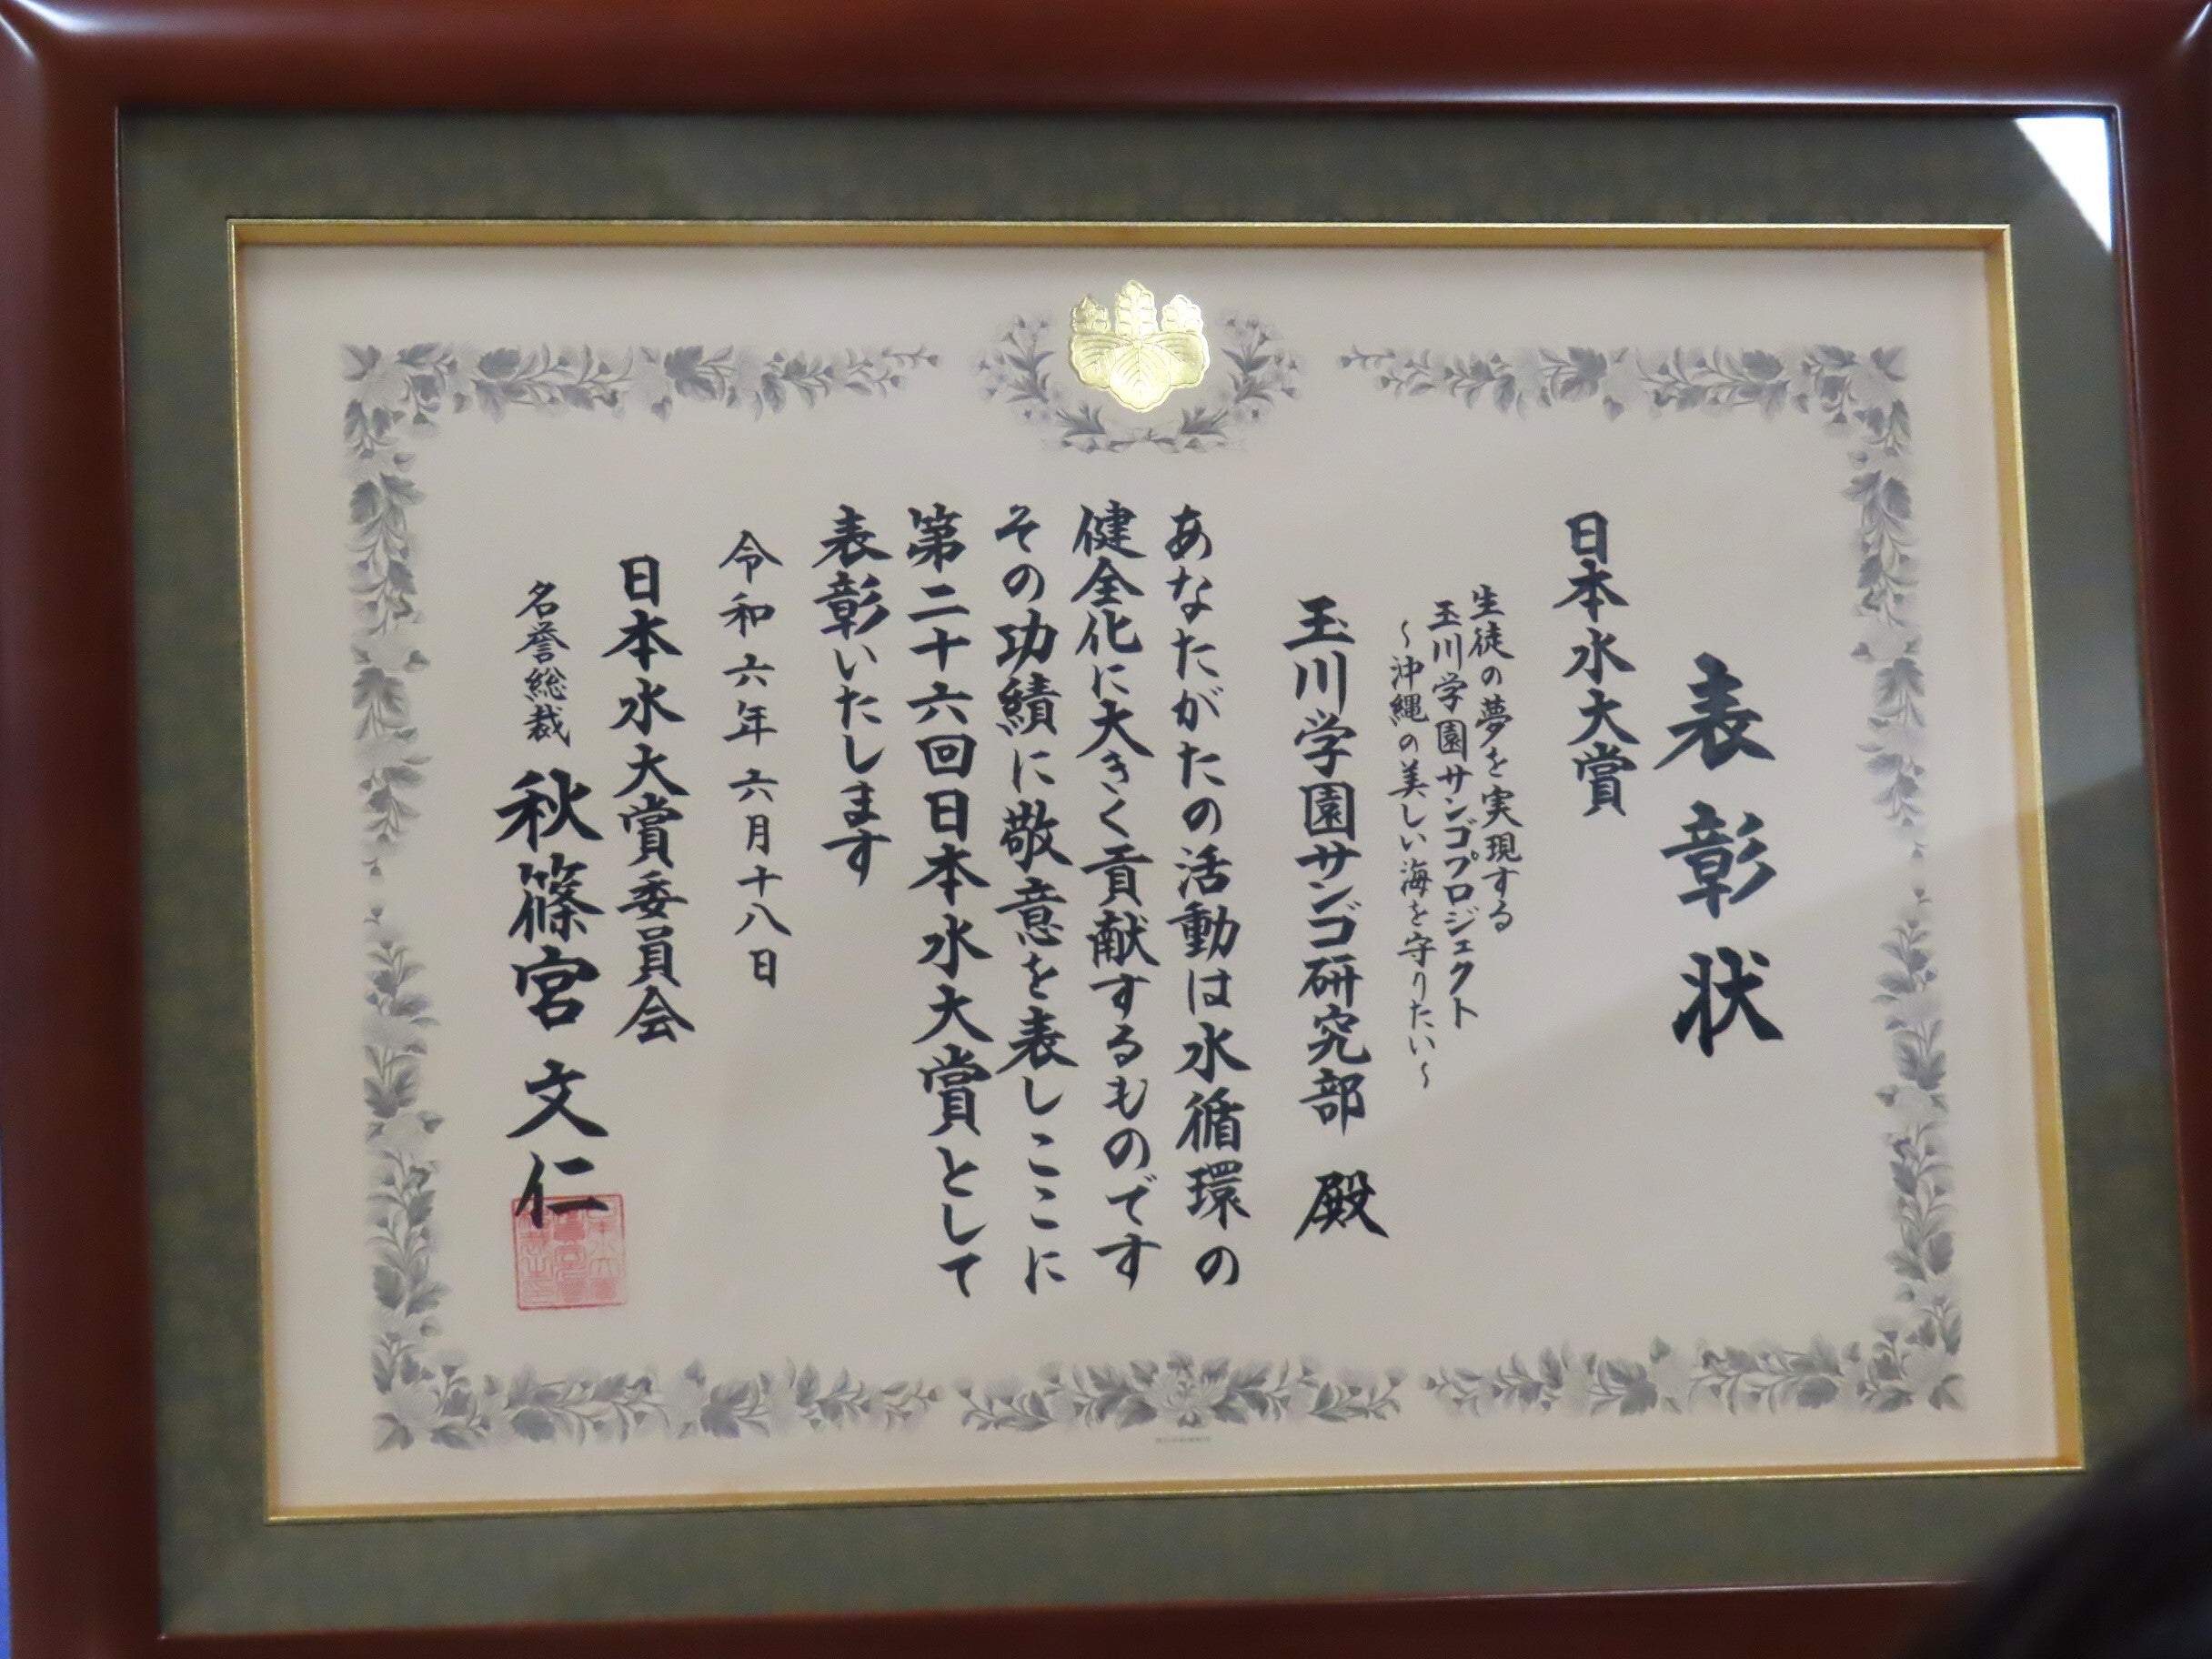 表彰状
日本水大賞
生徒の夢を実現する
玉川学園サンゴプロジェクト
〜沖縄の美しい海を守りたい〜
玉川学園サンゴ研究部 殿
あなたがたの活動は水循環の
健全化に大きく貢献するものです
その功績に敬意を表しここに
第二十六回日本水大賞として
表彰いたします
令和六年六月十八日
日本水大賞委員会
名誉総裁 秋篠宮文仁